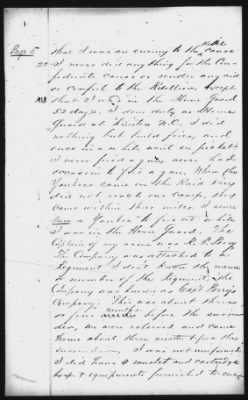 Page 5
that I was an enemy to the Rebel cause
22 I never did any thing for the Con-
federate cause or render any aid
or comfort to the Rebellion except
that I was in the Home Guard
52 days. I was on duty as Home
Guard at N.C. I did
nothing but build fires, and
once in a while went on picket
I never fired a gun, never had
occasion to fire a gun. When the
Yankees came on the Raid they
did not reach our Camp, they
came within three miles. I never
saw a Yankee to fire at while
I was in the Home Guard. The
Captain of my name was R. P. Perry
The Company was attached to a
Regiment I don't know the name
or number of the Regiment, the
Company was known as Capt Perry's
Company. This was about three
or four months before the surren-
der, we were relieved and came
home about three months before the
surrender. I was not uniformed
I did have a musket and cartridge
box & equipments furnished to me